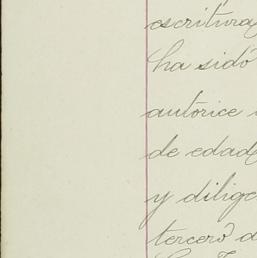 escritura
ha sido
autorice
de edad
y dilige
tercero d